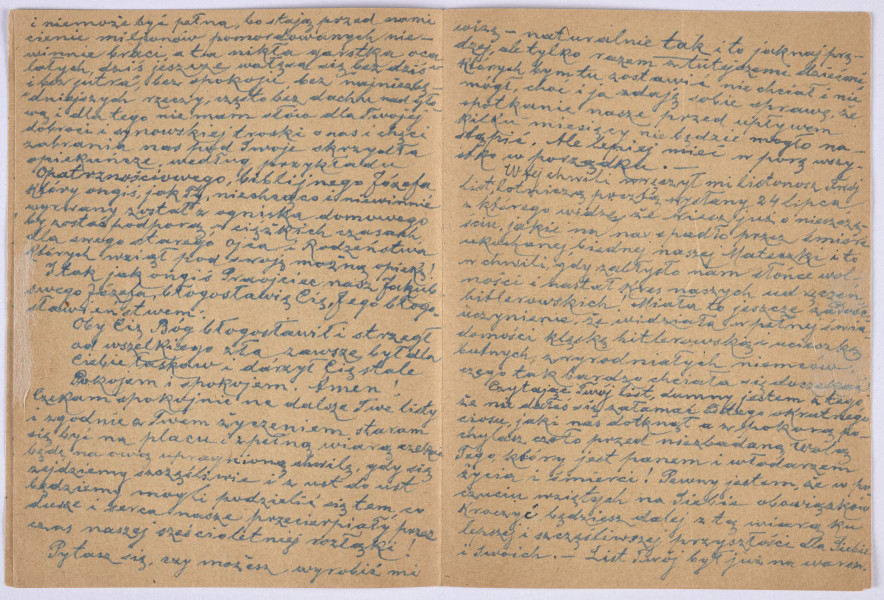 i niemoże być pełna, bo stają przed nami
cienie milionów pomordowanych nie-
winnie braci a ta nikła garstka oca
lałych, dziś jeszcze walczą się bez dziś
i bez jutra", bez spokoju bez najniezbę-
dniejszych rzeczy, często bez dachu nad gło
wą i dla tego nie mam słów dla Twojej
dobroci i synowskiej troski o nas i chęci
zabrania nas pod Twoje skrzydła
opiekuńcze, według przykładu
Opatrznościowego, biblijnego Józefa
który ongiś, jak Ty, niechcąco i niewinnie
wyrwany został z ogniska domowego
by zostać podporą w ciężkich czasach
dla swego starego Ojca i Rodzeństwa
których wziął pod swoją możną opiekę!
I tak jak ongiś Praojciec nasz Jakub
swego Józefa, błogosławię Cię, Jego błogo-
sławieństwem.
Oby Cię Bóg błogosławił i strzegł
od wszelkiego zła, zawsze był dla
Ciebie łaskaw i darzył Cię stale
Pokojem i spokojem. Amen!
Czekam spokojnie na dalsze Twe listy
i zgodnie z Twem życzeniem, staram
się być na placu i z pełną wiarą czekać
będę na ową upragnioną chwilę, gdy się
zejdziemy szczęśliwie i z ust do ust
będziemy mogli podzielić się tem, co
dusze i serca nasze przecierpiały przez
czas naszej sześcioletniej rozłąki!
Pytasz się, czy możesz wyrobić mi
wizę – naturalnie tak i to jaknajprę-
dzej, ale tylko razem z tutejszemi dziećmi
których bym tu zostawić nie chciał i nie
mógł, choć i ja zdaję sobie sprawę, że
spotkanie nasze przed upływem
kilku miesięcy nie będzie mogło na-
stąpić. Ale lepiej mieć w porę wszy-
stko w porządku. —
W tej chwili wręczył mi listonosz Twój
list, lotniczą pocztą wysłany 24 lipca
z którego widzę, że wiesz już o nieszczę-
ściu, jakie na nas spadło przez śmierć
ukochanej biednej naszej Mateczki i to
w chwili, gdy zabłysło nam słońce wol
ności i nastał kres naszych udręczeń
hitlerowskich! Miała to jeszcze zadość-
uczynienie, że widziała w pełnej świa
domości klęskę hitlerowską i ucieczkę
butnych, zwyrodniałych niemców
czego tak bardzo chciała się doczekać!
Czytając Twój list, dumny jestem z tego
że nie dałeś się załamać z tego okrutnego
ciosu, jaki nas dotknął a z pokorą po-
chylasz czoło przed niezbadaną Wolą
Tego, który jest panem i włodarzem
życia i śmierci! Pewny jestem, że w po
czuciu wziętych na Siebie obowiązków
kroczyć będziesz dalej z tą wiarą ku
lepszej i szczęśliwszej przyszłości dla Siebie
i swoich. — List Twój był już na warsz.